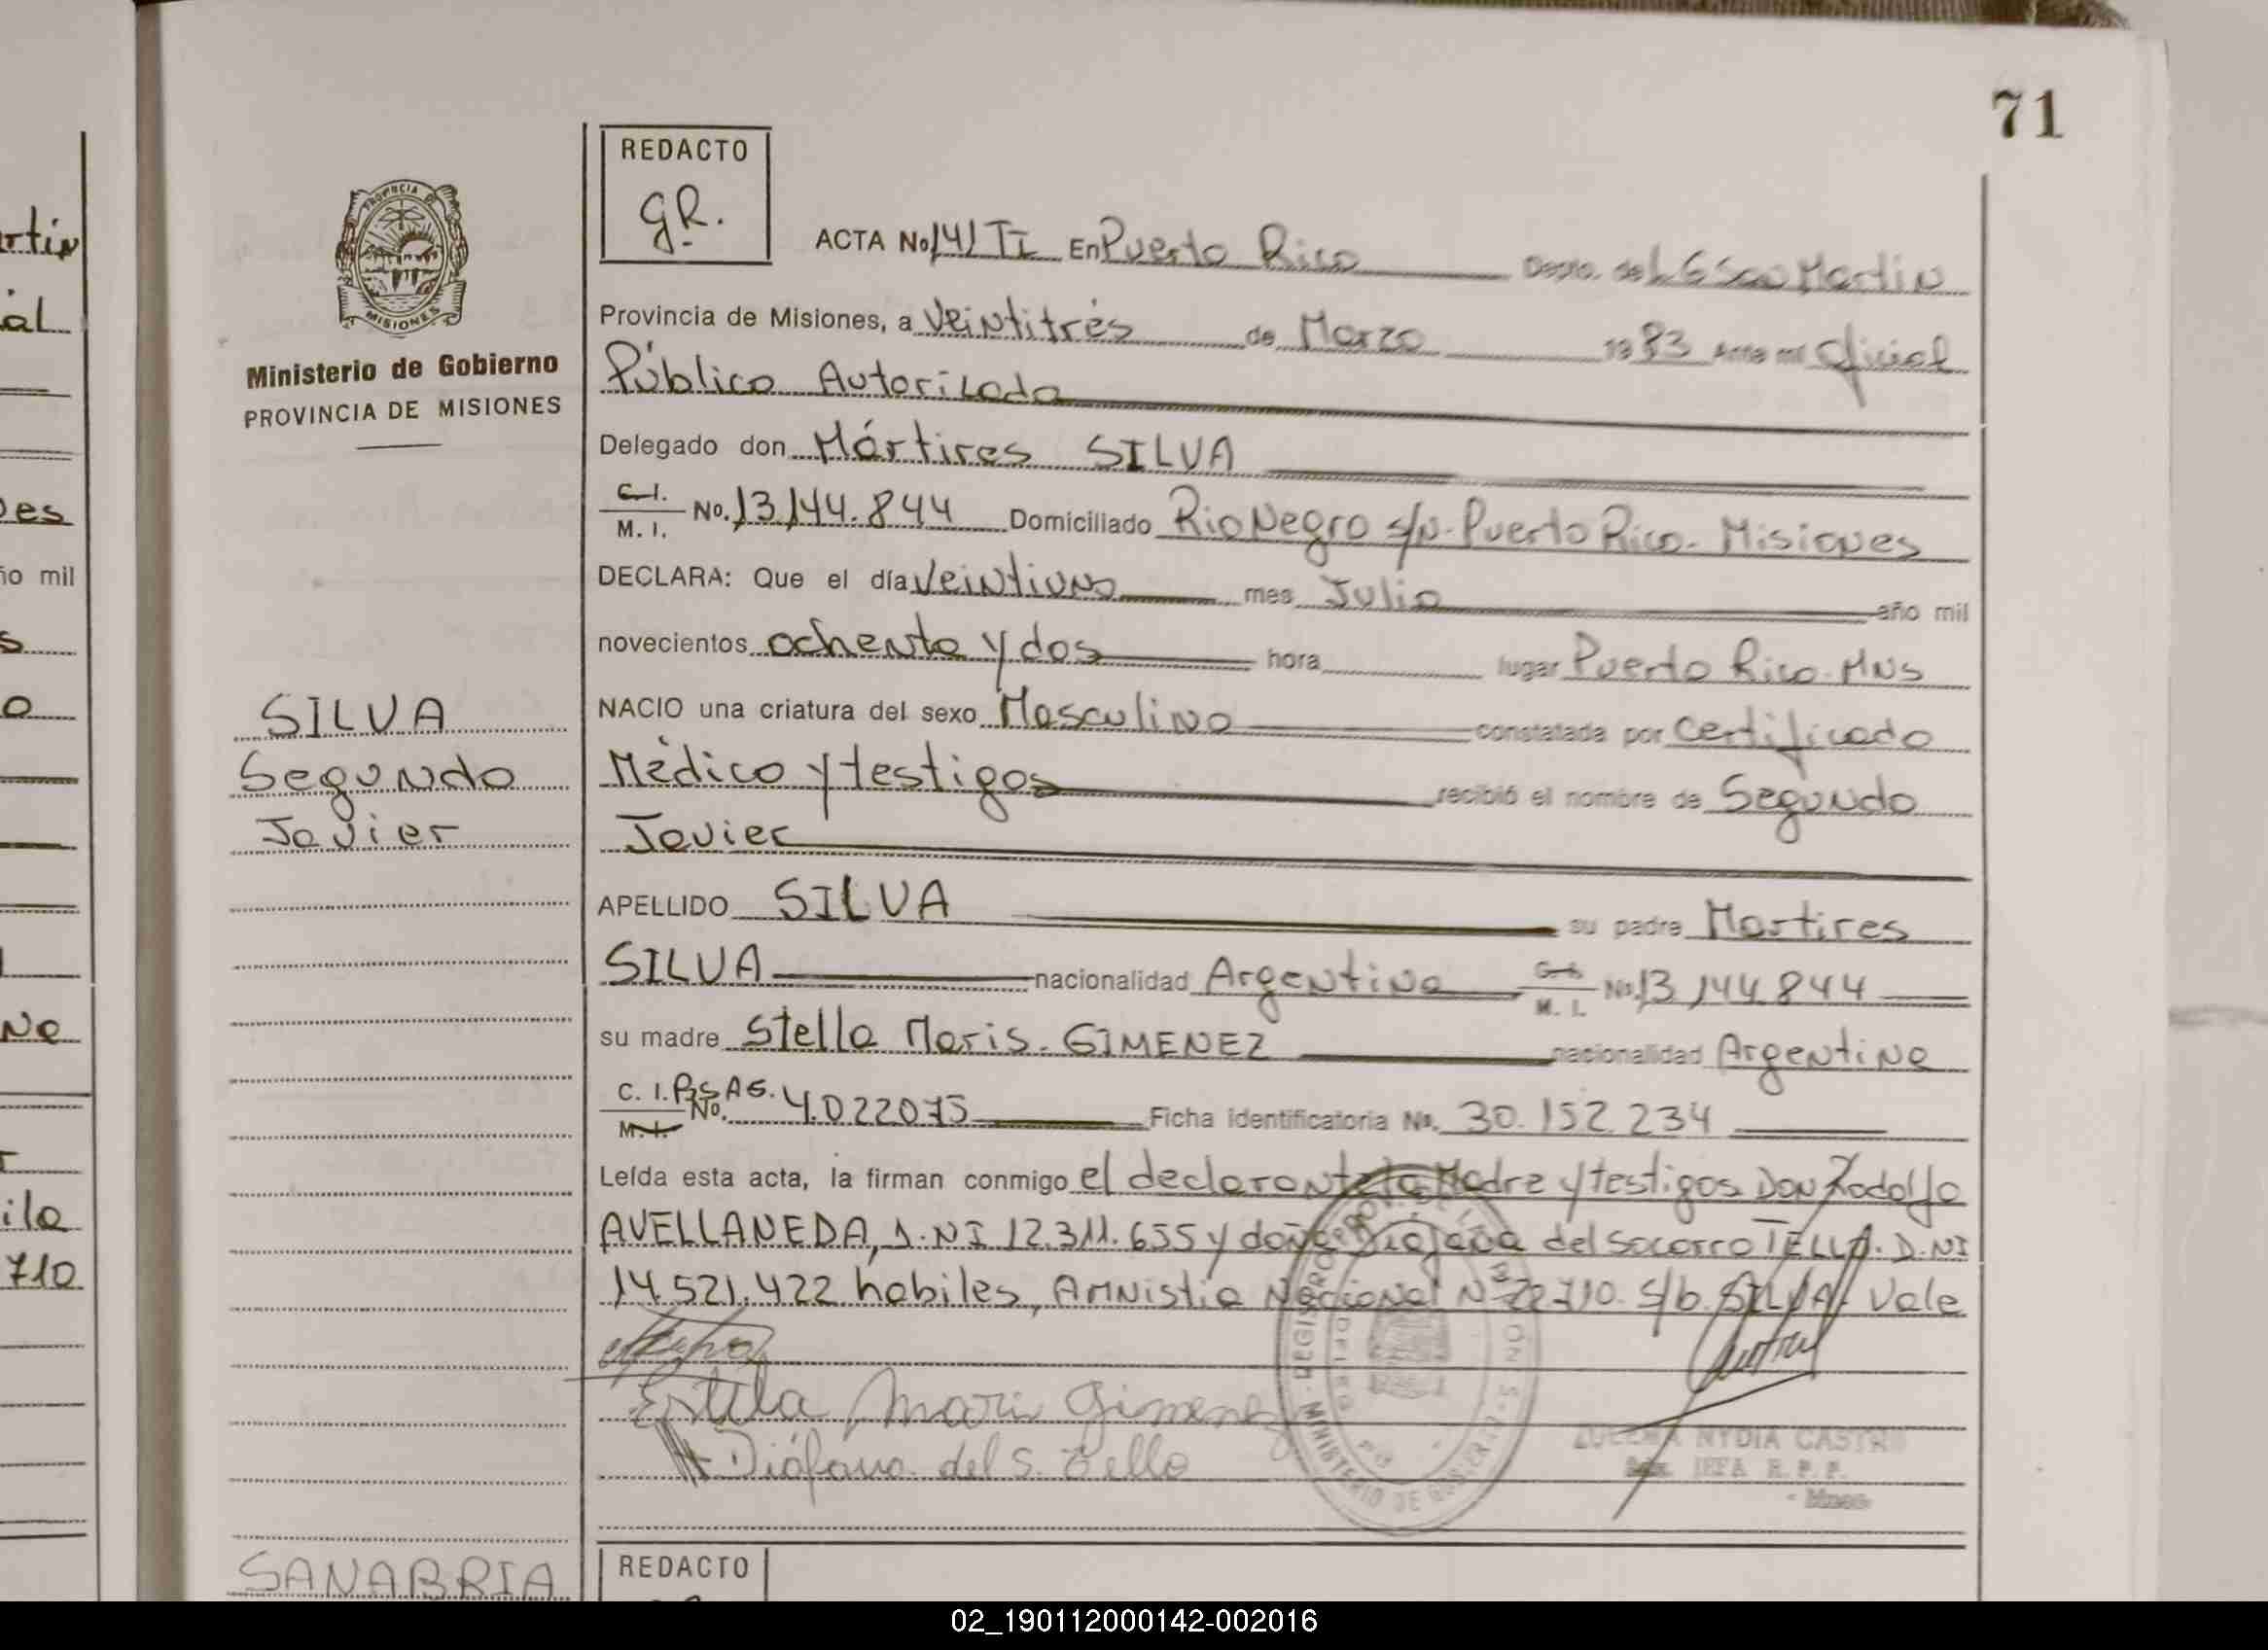 71
REDACTO
gR.
PROVINCIA DE
MISIONES
Ministerio de Gobierno
PROVINCIA DE MISIONES
ACTA No. 141 TI En Puerto Rico Depto. de L G San Martin
Provincia de Misiones, a Veintitrés de Marzo 1983 Ante mi Oficial
Público Autorizado
Delegado don Mártires SILVA
C. I. M. I. No. 13.144.844 Domiciliado Rio Negro s/n. Puerto Rico. Misiones
DECLARA: Que el día Veintiuno mes Julio año mil
novecientos ochenta y dos hora lugar Puerto Rico. Mns
NACIO una criatura del sexo Masculino constatada por Certificado
Médico y testigos recibió el nombre de Segundo
Javier
APELLIDO SILVA su padre Martires
SILVA nacionalidad Argentina C. I. M. I. No. 13.144.844
su madre Stella Maris. GIMENEZ nacionalidad Argentina
C. I. M. I. No. 4.022075 Ficha identificatoria No. 30.152.234
Leída esta acta, la firman conmigo el declarante la Madre y testigos Don Rodolfo
AVELLANEDA, D.NI 12.311.655 y doña Diáfana del Socorro TELLO. D.NI
14.521.422 habiles, Amnistia Nacional Nº 22.710. s/b. SILVA. Vale
Estela Mari Gimenez
Diáfana del S. Tello
NYDIA CASTRO
JEFA R. P. P.
MINISTERIO DE
SILVA
Segundo
Javier
SANABRIA
REDACTO
rtin
al
es
ño mil
s
o
ne
ila
710
02_190112000142-002016